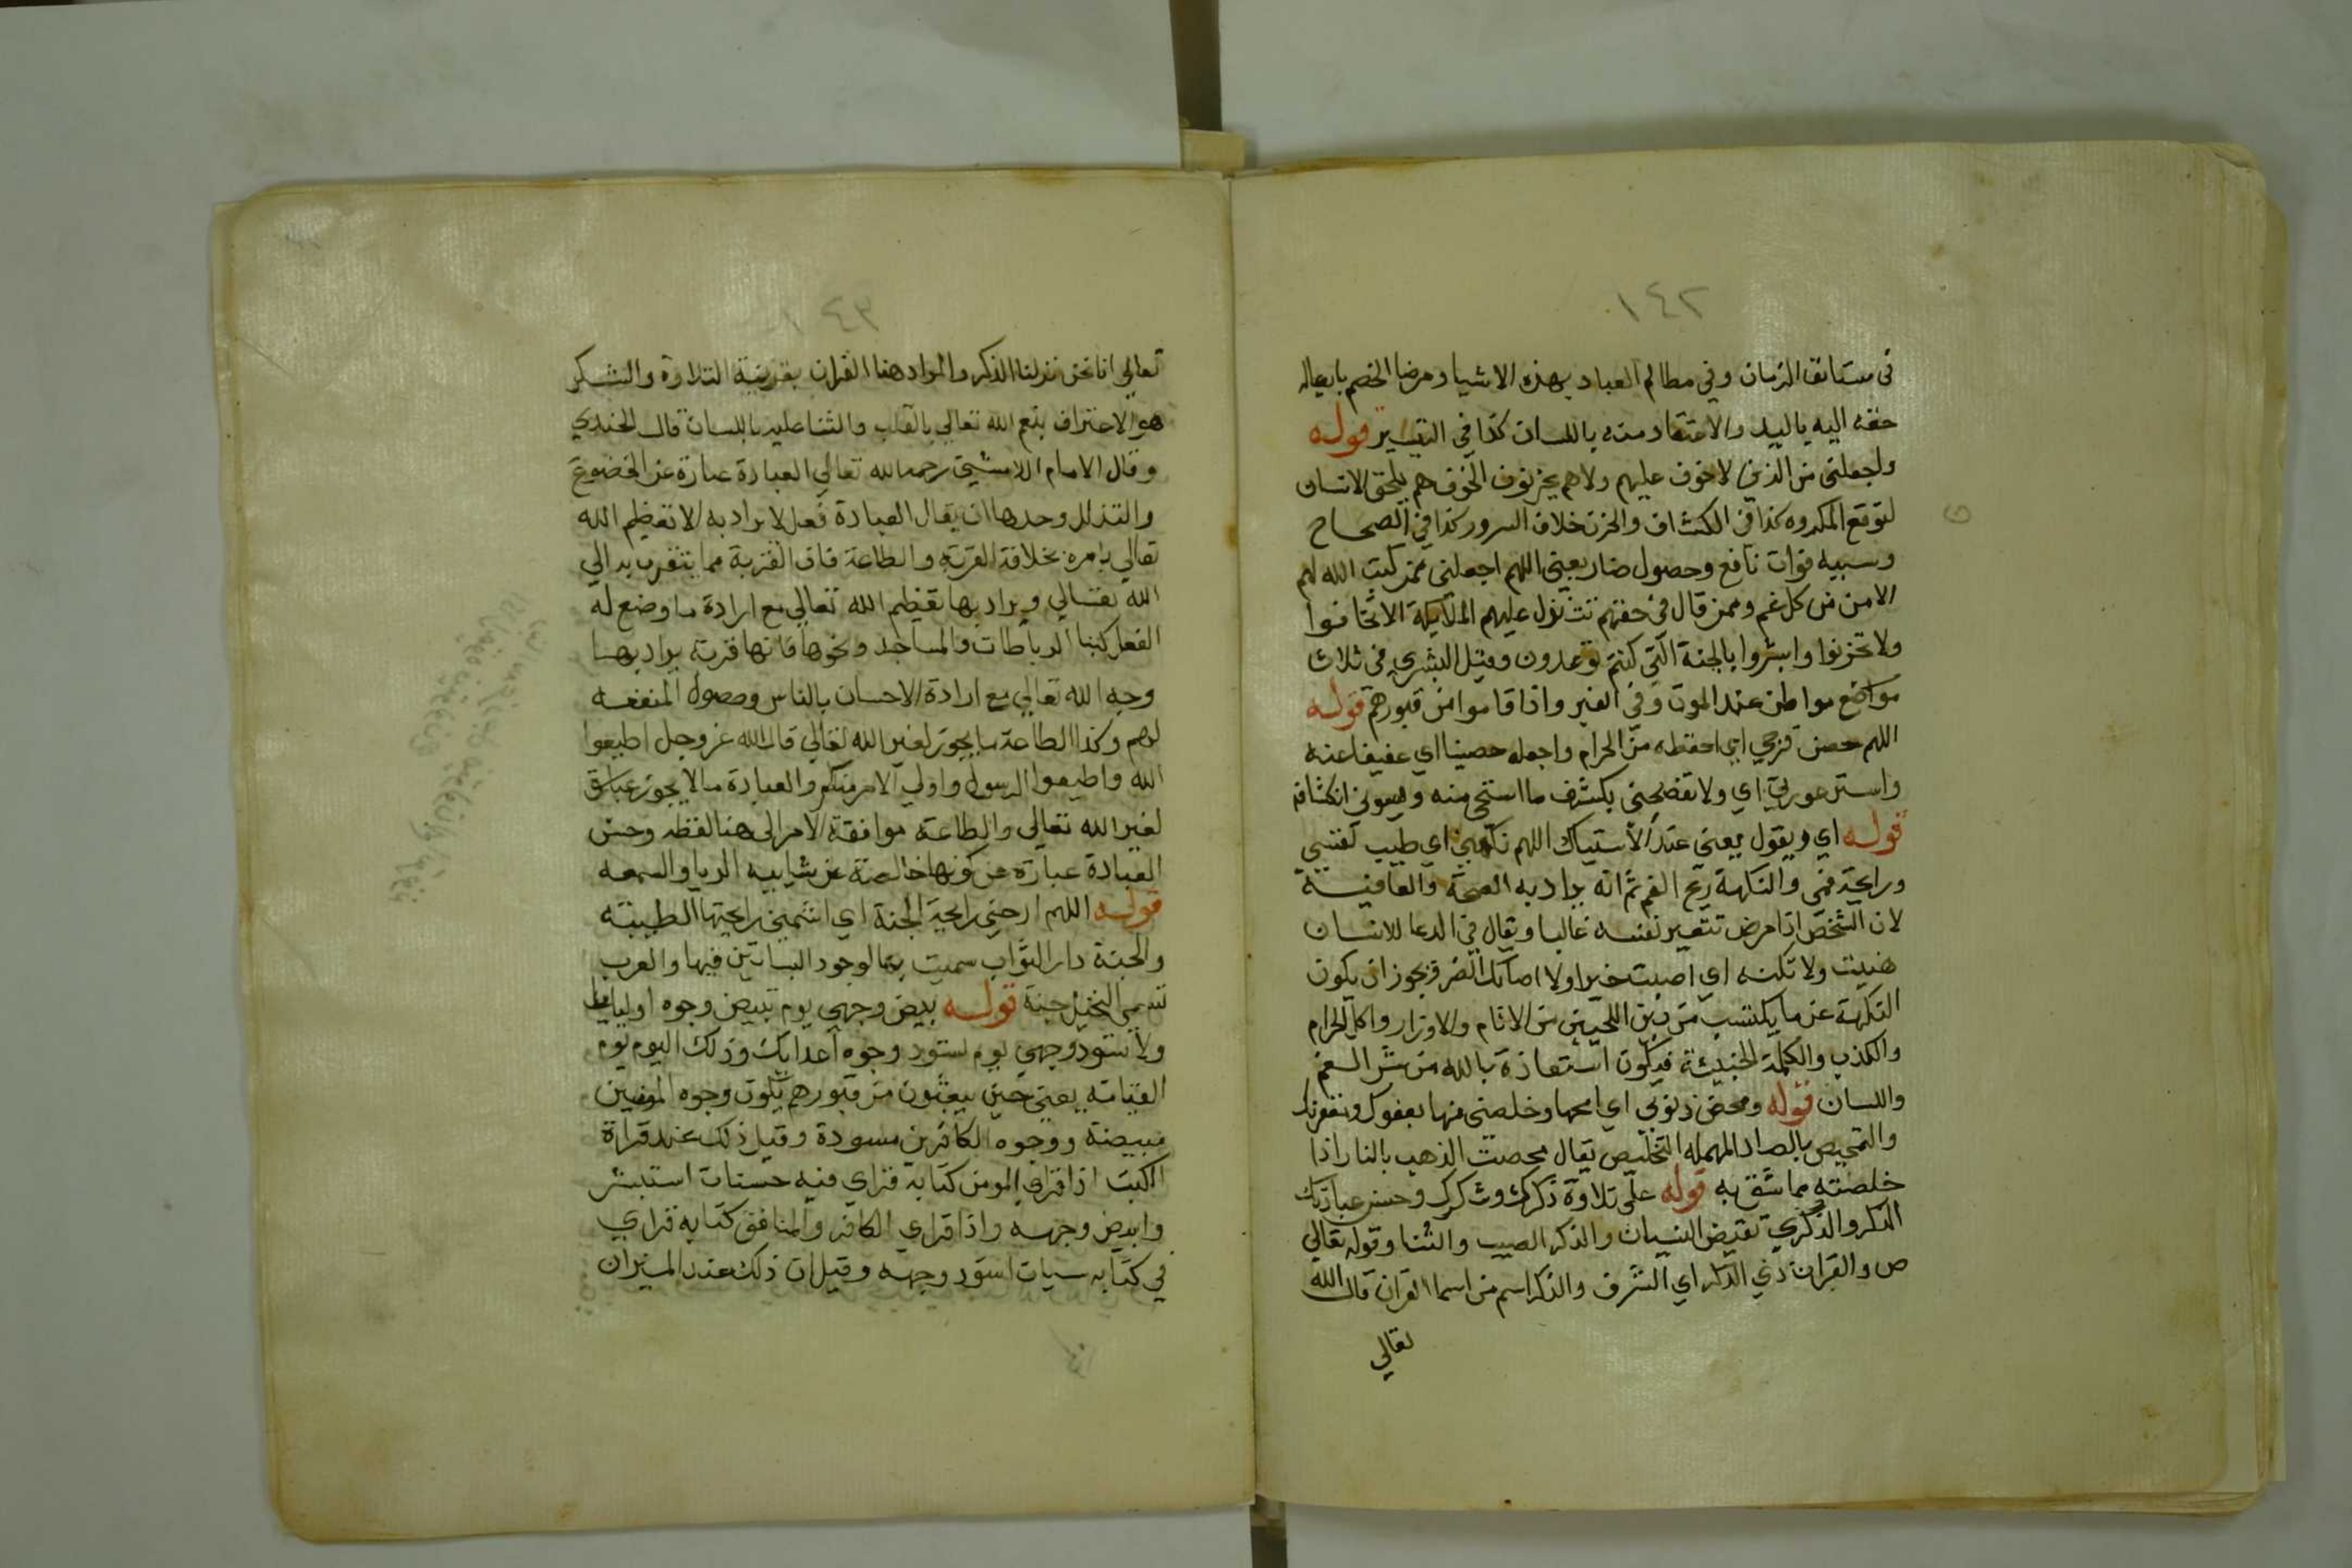 ١٤٢
في مستانف الزمان وفي مظالم العباد بهذه الاشيا ومرضا الخصم بايصال
حقه اليه باليد والاعتقاد منه باللسان كذا في التيسير قوله
واجعلني من الذين لا خوف عليهم ولا هم يحزنون الخوف هم يلحق الانسان
لتوقع المكروه كذا في الكشاف والحزن خلاف السرور كذا في الصحاح
وسببه فوات نافع وحصول ضار يعني اللهم اجعلني ممن كتبت الله لهم
الامن من كل غم وممن قال في حقهم تتنزل عليهم الملايكة الا تخافوا
ولا تحزنوا وابشروا بالجنة التي كنتم توعدون وقيل البشري في ثلاث
مواضع مواطن عند الموت وفي القبر واذا قاموا من قبورهم قوله
اللهم حصن فرجي اي احفظه من الحرام واجعله حصينا اي عفيفا عنه
واستر عورتي اي ولا تفضحني بكشف ما استحي منه ويسوني انكشافه
قوله اي ويقول يعني عند الاستياك اللهم نكهتي اي طيب نفسي
ورايحة فمي والنكهة ريح الفم ثم انه يراد به الصحة والعافية
لان الشخص اذا مرض تتغير نفسه غالبا ويقال في الدعا للانسان
هنيت ولا تنكه اي اصبت خيرا ولا اصابك الضر فيجوز ان يكون
النكهة عن ما يكتسب من بين اللحيين من الاثام والاوزار واكل الحرام
والكذب والكلمة الخبيثة فيكون استعاذة بالله من شر الفم
واللسان قوله ومحض ذنوبي اي امحها وخلصني منها بعفوك ومغفرتك
والتمحيص بالصاد المهملة التخليص يقال محصت الذهب بالنار اذا
خلصته مما شق به قوله علي تلاوة ذكرك وشكرك وحسن عبادتك
الذكر والذكري نقيض النسيان والذكر الصيت والثنا وقوله تعالي
ص والقران ذي الذكر اي الشرف والذكر اسم من اسما القران قال الله
تعالي
١٤٣
تعالي انا نحن نزلنا الذكر والمراد هنا القران بقرينة التلاوة والشكر
هو الاعتراف بنعم الله تعالي بالقلب والثنا عليه باللسان قال الجندي
وقال الامام اللامشي رحمه الله تعالي العبادة عبارة عن الخضوع
والتذلل وحدها ان يقال العبادة فعل لا يراد به الا تعظيم الله
تعالي بامره بخلاف القربة والطاعة فان القربة مما يتقرب به الي
الله تعالي ويراد بها تعظيم الله تعالي مع ارادة ما وضع له
الفعل كبنا الرباطات والمساجد ونحوها فانها قربة يراد بها
وجه الله تعالي مع ارادة الاحسان بالناس وحصول المنفعه
لهم وكذا الطاعة ما يجوز لغير الله تعالي قال الله عز وجل اطيعوا
الله واطيعوا الرسول واولي الامر منكم والعبادة ما لا يجوز
لغير الله تعالي والطاعة موافقة الامر الى هنا لفظه وحسن
العبادة عبارة عن كونها خالصة عن شايبه الريا والسمعه
قوله اللهم ارحني رايحة الجنة اي اشممني رايحتها الطيبته
والجنة دار الثواب سميت بها لوجود البساتين فيها والعرب
تسمي النخيل جنة قوله بيض وجهي يوم تبيض وجوه اولياىك
ولا تسود وجهي يوم تسود وجوه اعدايك وذلك اليوم يوم
القيامة يعني حين يبعثون من قبورهم تكون وجوه المومنين
مبيضة ووجوه الكافرين مسودة وقيل ذلك عند قراة
الكتب اذا قرا المومن كتابه فراي فيه حسنات استبشر
وابيض وجهه واذا قراي الكافر والمنافق كتابه فراي
في كتابه سيات اسود وجهه وقيل ان ذلك عند الميزان